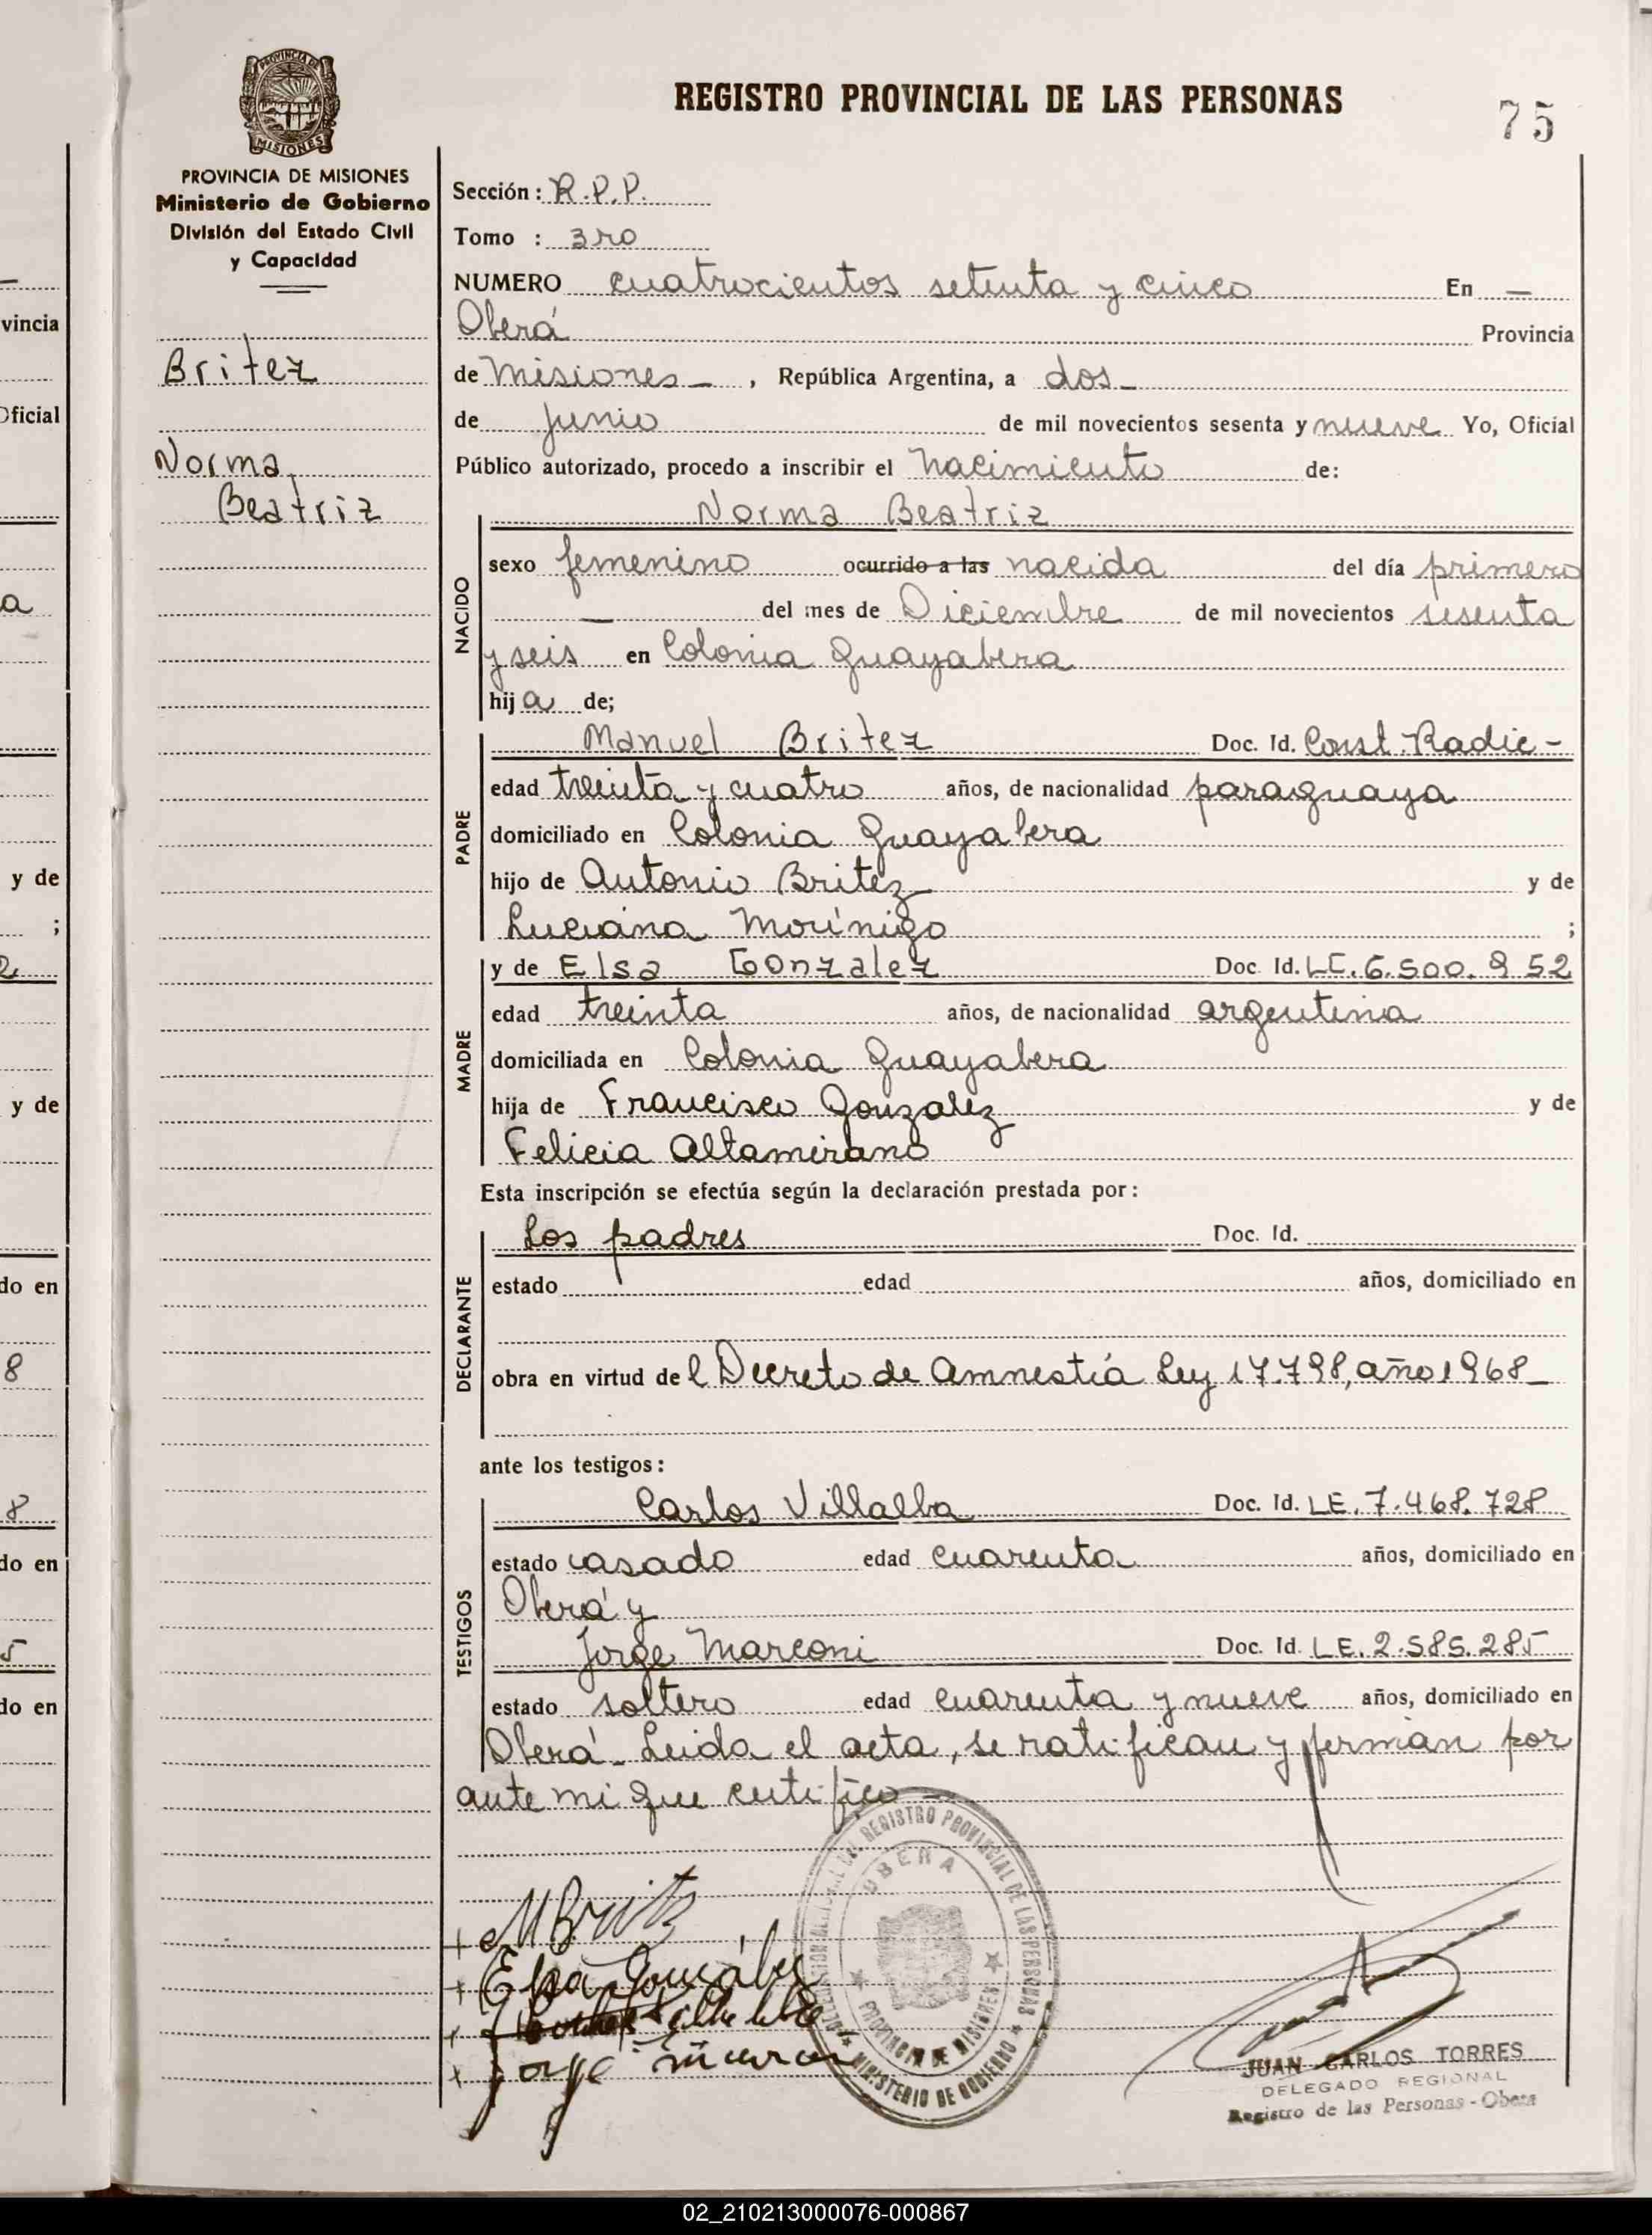 REGISTRO PROVINCIAL DE LAS PERSONAS
75
PROVINCIA DE MISIONES
PROVINCIA DE MISIONES
Ministerio de Gobierno
División del Estado Civil
y Capacidad
Britez
Norma
Beatriz
Sección: R.P.P.
Tomo : 3ro
NUMERO cuatrocientos setenta y cinco En —
Oberá Provincia
de Misiones — , República Argentina, a dos —
de Junio de mil novecientos sesenta y nueve Yo, Oficial
Público autorizado, procedo a inscribir el nacimiento de:
NACIDO
Norma Beatriz
sexo femenino ocurrido a las nacida del día primero
— del mes de Diciembre de mil novecientos sesenta
y seis en Colonia Guayabera
hija de;
PADRE
Manuel Britez Doc. Id. Const. Radic -
edad treinta y cuatro años, de nacionalidad paraguaya
domiciliado en Colonia Guayabera
hijo de Antonio Britez y de
Luciana Morínigo ;
MADRE
y de Elsa Gonzalez Doc. Id. LC. 6.500.952
edad treinta años, de nacionalidad argentina
domiciliada en Colonia Guayabera
hija de Francisco Gonzalez y de
Felicia Altamirano
Esta inscripción se efectúa según la declaración prestada por:
DECLARANTE
Los padres Doc. Id.
estado edad años, domiciliado en
obra en virtud del Decreto de Amnestía Ley 17.798, año 1968 —
ante los testigos:
TESTIGOS
Carlos Villalba Doc. Id. LE. 7.468.728
estado casado edad cuarenta años, domiciliado en
Oberá y
Jorge Marconi Doc. Id. LE. 2.585.285
estado soltero edad cuarenta y nueve años, domiciliado en
Oberá - Leida el acta, se ratifican y firman por
ante mi que certifico —
+ M Britz
+ Elsa González
+
x Jorge Marconi
REGISTRO PROVINCIAL DE LAS PERSONAS
OBERA
PROVINCIA DE MISIONES
MINISTERIO DE GOBIERNO
JUAN CARLOS TORRES
DELEGADO REGIONAL
Registro de las Personas - Obera
vincia
Oficial
a
y de
;
2
y de
do en
8
8
do en
5
do en
02_210213000076-000867